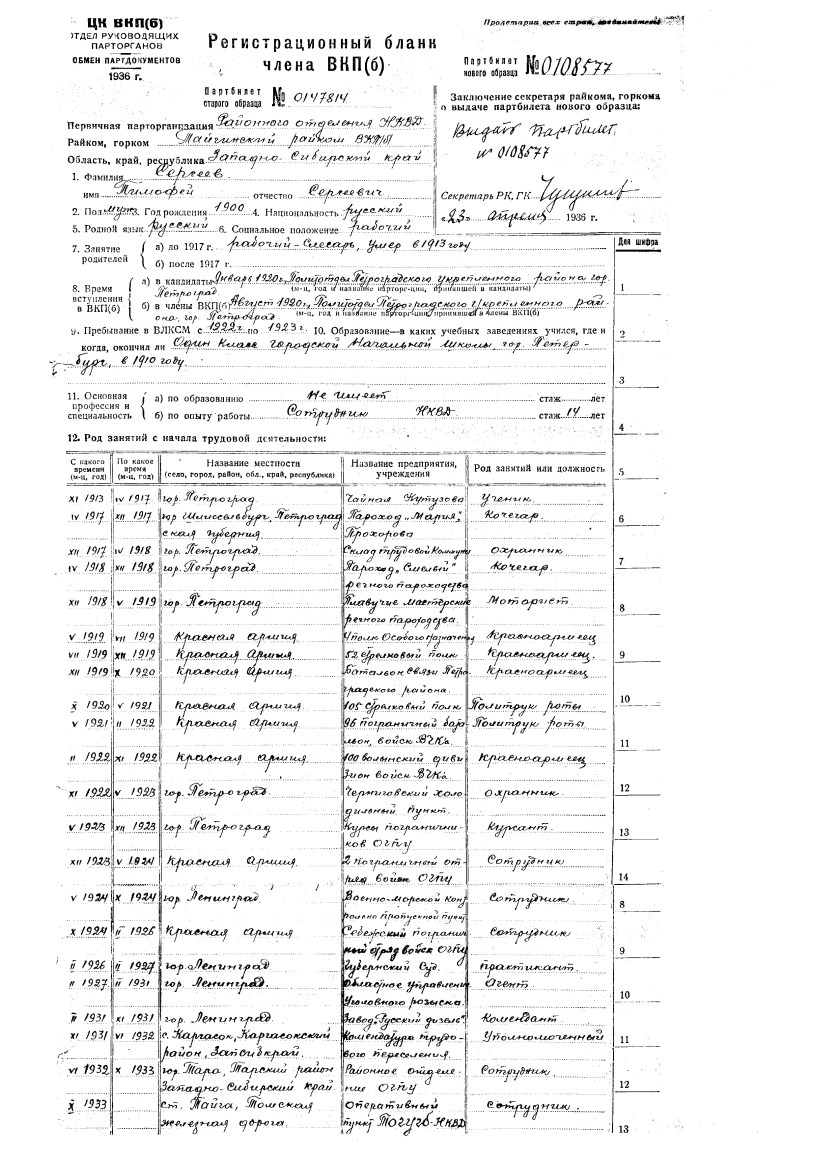 ЦК ВКП(б)
ОТДЕЛ РУКОВОДЯЩИХ
ПАРТОРГАНОВ
ОБМЕН ПАРТДОКУМЕНТОВ
1936 г.
Пролетарии всех стран, соединяйтесь!
Регистрационный бланк
члена ВКП(б)
Партбилет старого образца № 0147814
Партбилет нового образца № 0108577
Заключение секретаря райкома, горкома
о выдаче партбилета нового образца:
Выдать партбилет.
№ 0108577
Секретарь РК, ГК
«23» апреля 1936 г.
Первичная парторганизация Районного отделения НКВД
Райком, горком Тайгинский райком ВКП(б)
Область, край, республика Западно-Сибирский край
1. Фамилия Сергеев
имя Тимофей отчество Сергеевич
2. Пол муж 3. Год рождения 1900 4. Национальность русский
5. Родной язык русский 6. Социальное положение рабочий
7. Занятие родителей а) до 1917 г. рабочий-слесарь, умер в 1913 году
б) после 1917 г.
8. Время вступления в ВКП(б) а) в кандидаты Январь 1920 г., Политотдел Петроградского укрепленного района гор.
Петроград (м-ц, год и название парторг-ции, принявшей в кандидаты)
б) в члены ВКП(б) Август 1920 г., Политотдел Петроградского укрепленного рай-
она, гор. Петроград (м-ц, год и название парторг-ции, принявшей в члены ВКП(б)
9. Пребывание в ВЛКСМ с 1922 г. по 1923 г. 10. Образование—в каких учебных заведениях учился, где и
когда, окончил ли Один класс городской начальной школы, гор. Петер-
бург, в 1910 году.
11. Основная профессия и специальность а) по образованию Не имеет стаж лет
б) по опыту работы Сотрудник НКВД стаж 14 лет
12. Род занятий с начала трудовой деятельности:
С какого времени (м-ц, год) По какое время (м-ц, год) Название местности (село, город, район, обл., край, республика) Название предприятия, учреждения Род занятий или должность
XI 1913 IV 1917 гор. Петроград Чайная Кутузова Ученик
IV 1917 XII 1917 гор. Шлиссельбург, Петроград Пароход „Мария", Кочегар.
ская губерния Прохорова
XII 1917 IV 1918 гор. Петроград. Склад трудовой Коммуны охранник
IV 1918 XII 1918 гор. Петроград. Пароход „Смелый" Кочегар.
речного пароходства
XII 1918 V 1919 гор. Петроград Плавучие мастерские Моторист.
речного пароходства.
V 1919 VII 1919 Красная армия полк Особого назначения Красноармеец
VII 1919 XII 1919 Красная Армия 52 стрелковый полк Красноармеец.
XII 1919 X 1920 Красная Армия Баталион связи Петро- Красноармеец
градского района.
X 1920 V 1921 Красная Армия. 105 стрелковый полк Политрук роты
V 1921 II 1922 Красная Армия 96 пограничный баталь- Политрук роты.
он, войск ВЧК.
II 1922 XI 1922 Красная армия 100 волынский диви Красноармеец
зион войск ВЧК.
XI 1922 V 1923 гор. Петроград. Черниговский холо- охранник.
дильный пункт.
V 1923 XII 1923 гор. Петроград Курсы погранични- Курсант.
ков ОГПУ
XII 1923 V 1924 Красная Армия. 2 пограничный от- Сотрудник
ряд войск ОГПУ
V 1924 X 1924 гор. Ленинград. Военно-морской конт Сотрудник
рольно пропускной пункт
X 1924 II 1926 Красная армия Себежский погранич- сотрудник
ный отряд войск ОГПУ
II 1926 II 1927 гор. Ленинград Губернский Суд. практикант.
II 1927 II 1931 гор. Ленинград. Областное управление Агент.
уголовного розыска.
II 1931 XI 1931 гор. Ленинград. Завод „Русский дизель" Комендант
XI 1931 VI 1932 с. Каргасок, Каргасокский Комендатура трудо- Уполномоченный
район, Запсибкрай. вого переселения.
VI 1932 X 1933 гор. Тара, Тарский район Районное отделе- Сотрудник
Западно-Сибирский край. ние ОГПУ
X 1933 ст. Тайга, Томская Оперативный сотрудник.
железная дорога. пункт НКВД
Для шифра
1
2
3
4
5
6
7
8
9
10
11
12
13
14
8
9
10
11
12
13